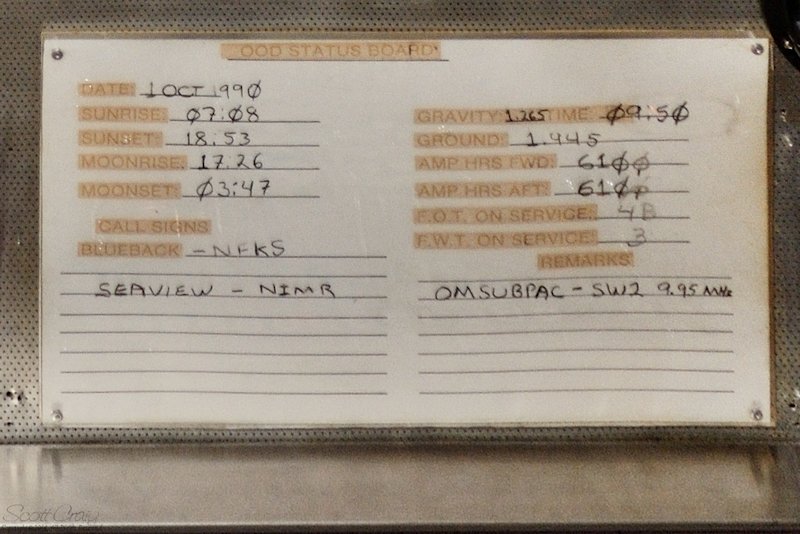 OOD STATUS BOARD
DATE: 1 OCT 1990
SUNRISE: 07:08
SUNSET: 18:53
MOONRISE: 17:26
MOONSET: 03:47
CALL SIGNS
BLUEBACK - NFKS
SEAVIEW - NIMR
GRAVITY: 1.265 TIME: 09:50
GROUND: 1.445
AMP HRS FWD: 6100
AMP HRS AFT: 610
F.O.T. ON SERVICE: 4B
F.W.T. ON SERVICE: 3
REMARKS
OMSUBPAC - SW2 9.95 MHz
Scott Craig